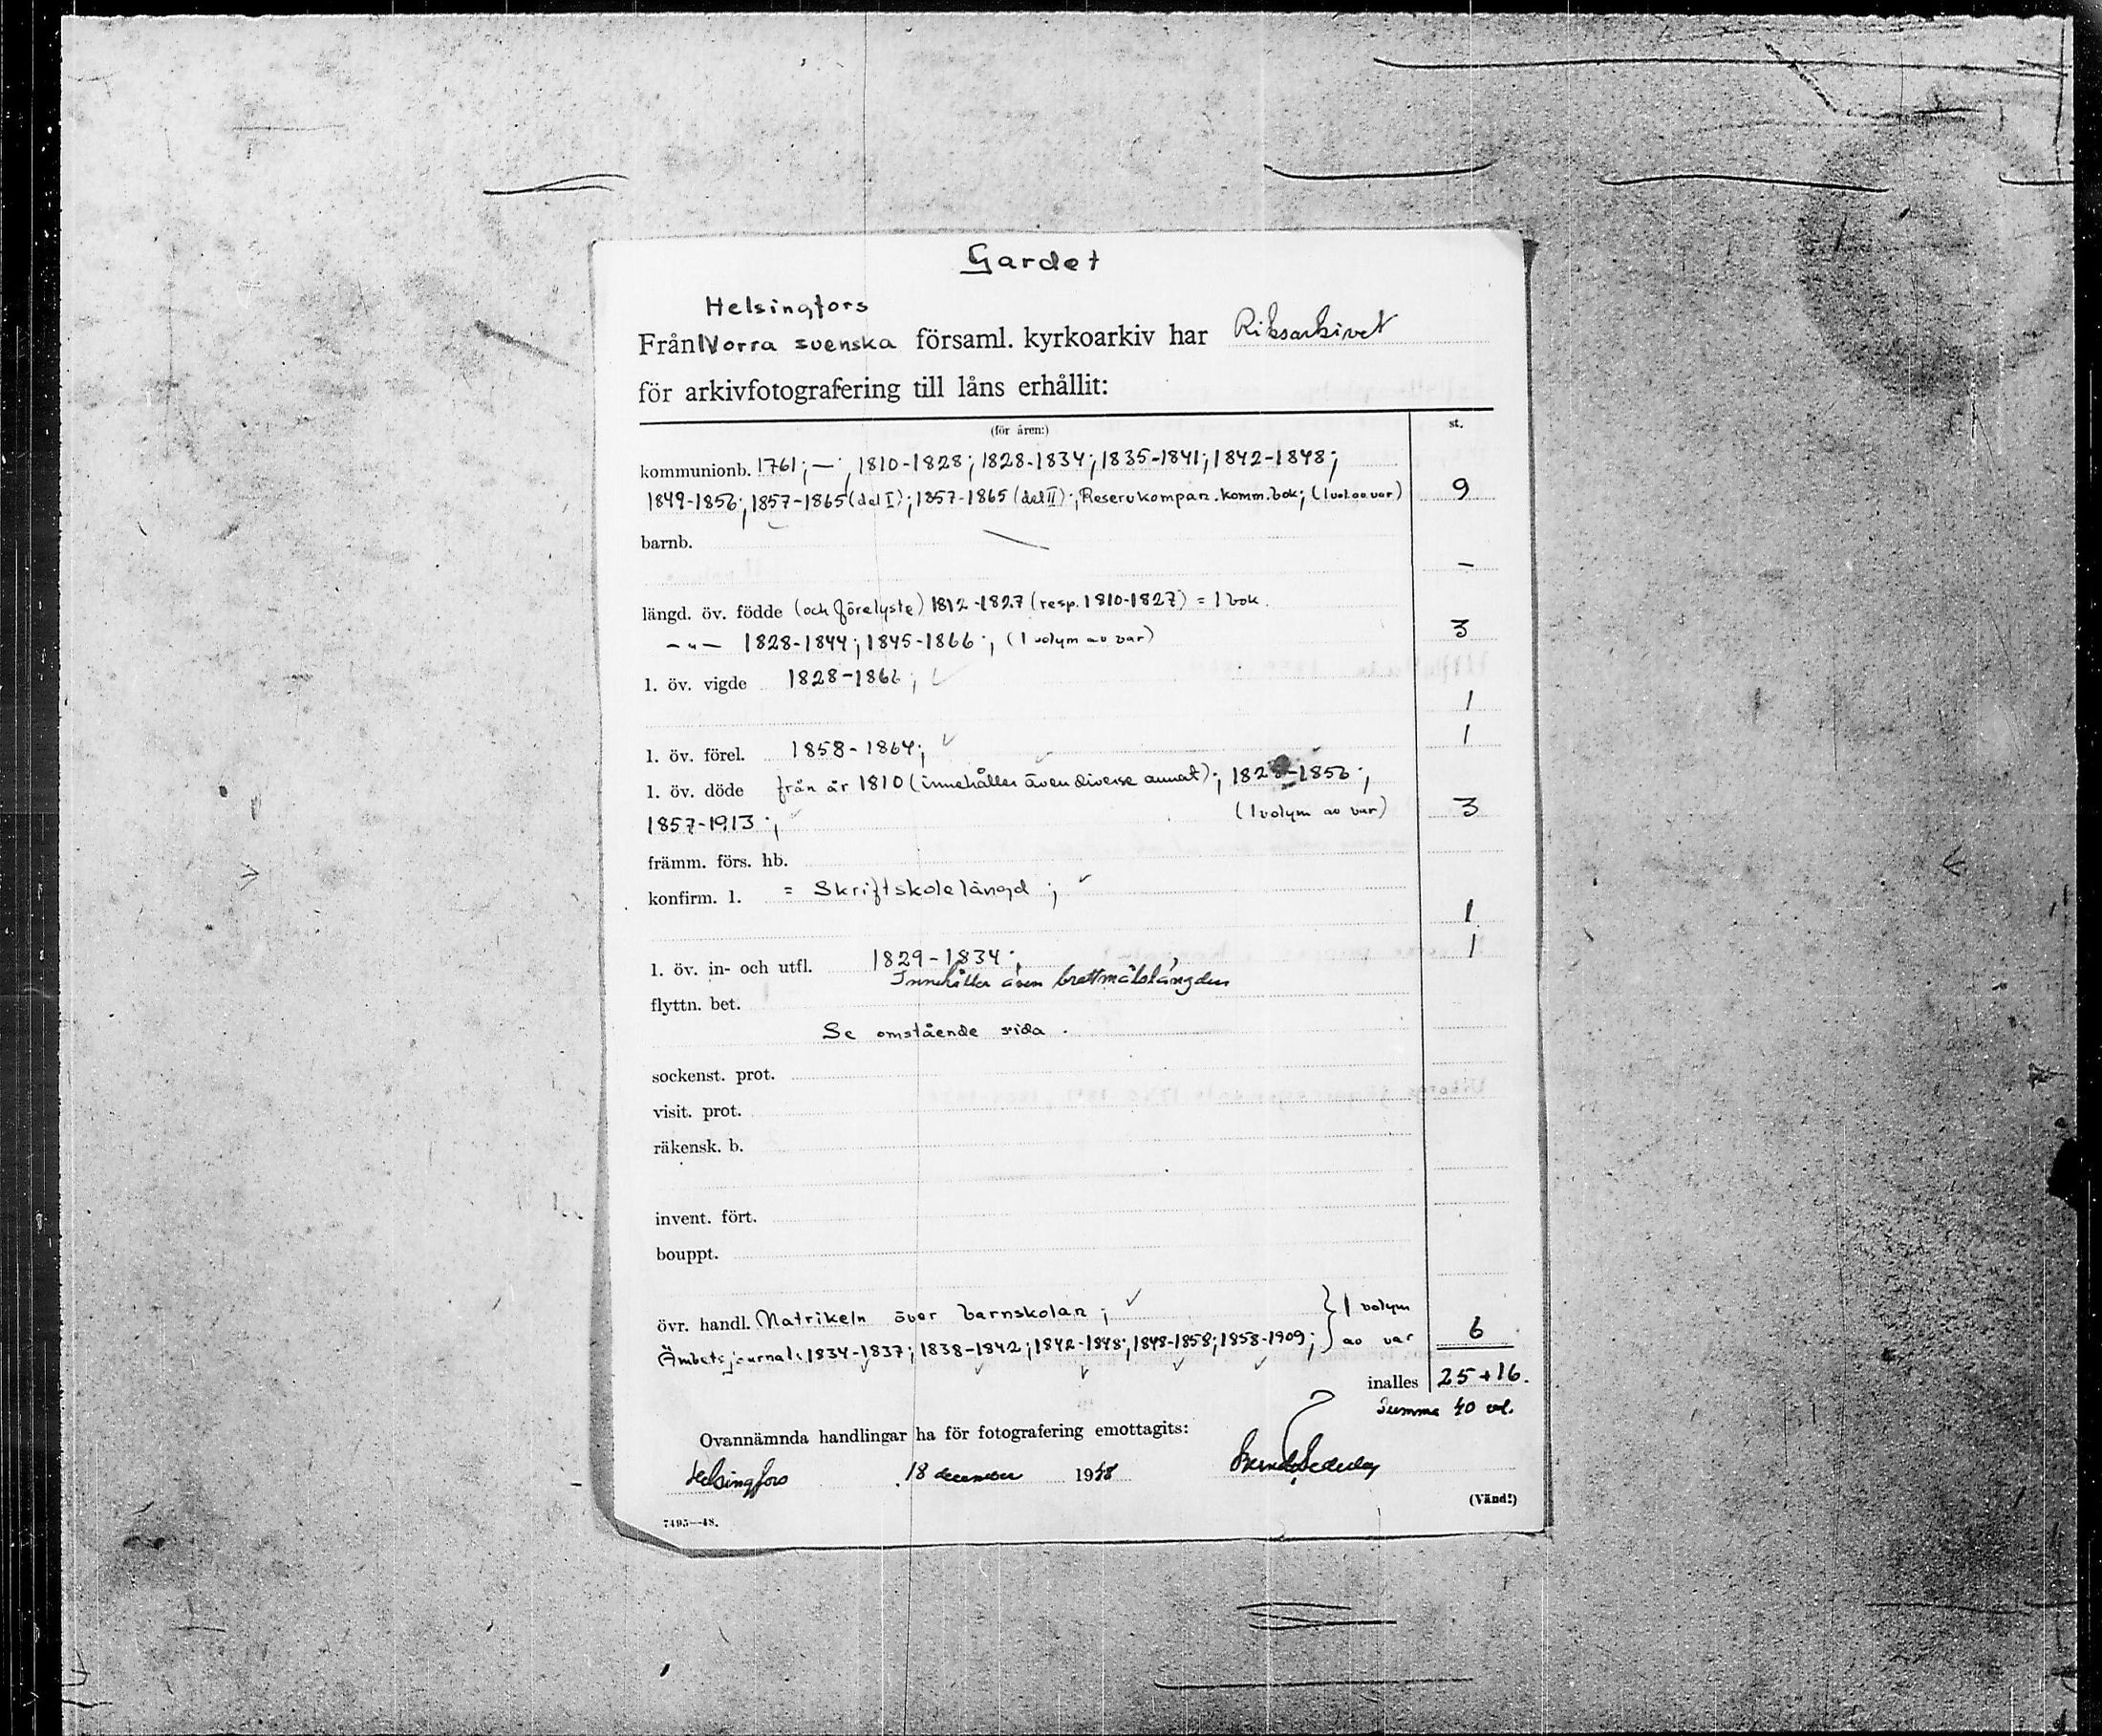 Gardet
Helsingfors
Från Norra svenska församl. kyrkoarkiv har Riksarkivet
för arkivfotografering till låns erhållit:
(för åren:) st.
kommunionb. 1761; — ; 1810-1828; 1828-1834; 1835-1841; 1842-1848;
1849-1856; 1857-1865 (del I); 1857-1865 (del II); Reservkompan. komm.bok; (1 vol. av var) 9
barnb.
–
längd. öv. födde (och förelyste) 1812-1827 (resp. 1810-1827) = 1 bok.
– " – 1828-1844; 1845-1866; (1 volym av var) 3
l. öv. vigde 1828-1866;
1
l. öv. förel. 1858-1864; 1
l. öv. döde från år 1810 (innehåller även diverse annat); 1828-1856;
1857-1913; (1 volym av var) 3
främm. förs. hb.
konfirm. l. = Skriftskolelängd;
1
l. öv. in- och utfl. 1829-1834; 1
Innehåller även brottmålslängden
flyttn. bet.
Se omstående sida.
sockenst. prot.
visit. prot.
räkensk. b.
invent. fört.
bouppt.
övr. handl. Matrikeln över barnskolan; } 1 volym
Ämbetsjournal: 1834-1837; 1838-1842; 1842-1848; 1848-1858; 1858-1909; } av var 6
inalles 25+16.
Summa 40 vol.
Ovannämnda handlingar ha för fotografering emottagits:
Helsingfors 18 december 1948
(Vänd!)
7495—48.